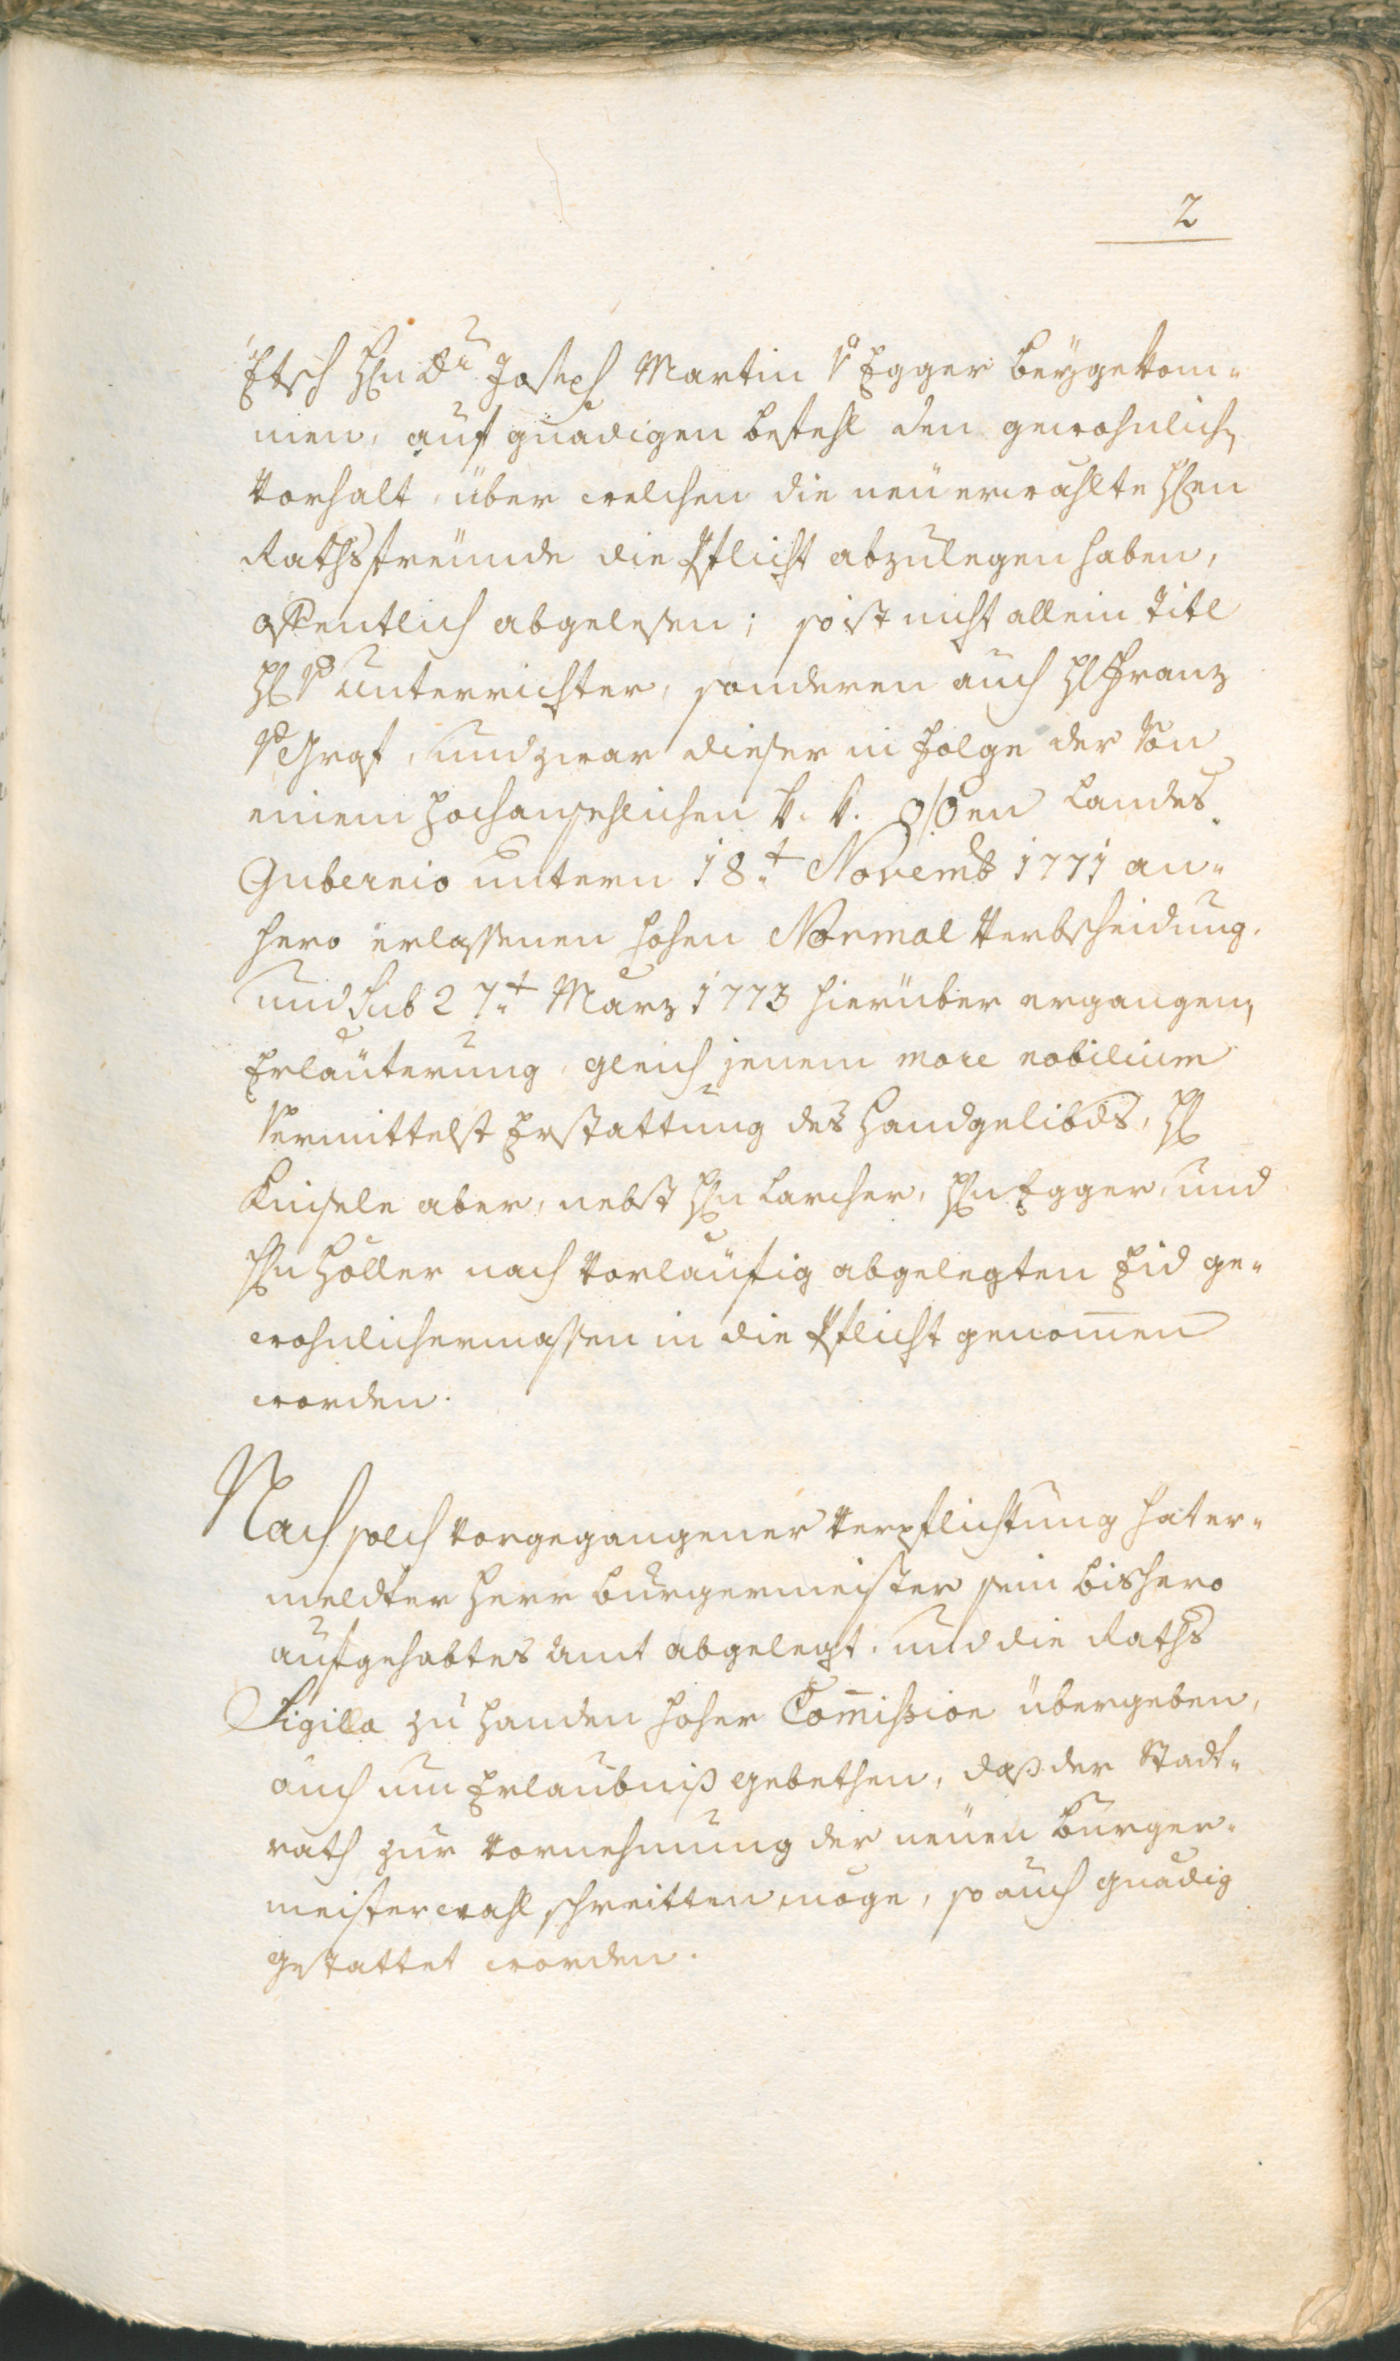 2
Etsch Hn Dr. Joseph Martin v Egger beygekom-
men, auf gnädigen befehl den gewohnlichen
Vorhalt, über welchen die neüerwählte Hen
Rathsfreünde die Pflicht abzulegen haben,
offentlich abgelesen; so ist nicht allein titl
H v unterrichter, sonderen auch H Franz
v Graf, und zwar dieser in folge der von
einem hochansehlichen k. k. o/öen Landes-
Gubernio untern 18.t Novemb 1771 an-
hero erlassenen hohen Normal Verbscheidung,
und Sub 27.t März 1773 hierüber ergangen
Erläuterung, gleich jenem more nobilium
vermittelst Erstattung des Handgelibds, H
Kinsele aber, nebst Hn Larcher, Hn Egger, und
Hn Höller nach vorläufig abgelegten Eid ge-
wohnlichermassen in die Pflicht genomen
worden.
Nach solch vorgegangener Verpflichtung hat er-
meldter Herr burgermeister sein bishero
aufgehabtes Amt abgelegt, und die Raths
Sigilla zu Handen hoher Comission übergeben,
auch um Erlaubniß gebethen, daß der Stadt-
rath zur Vornehmung der neüen Burger-
meisterwahl schreitten möge, so auch gnädig
gestattet worden.